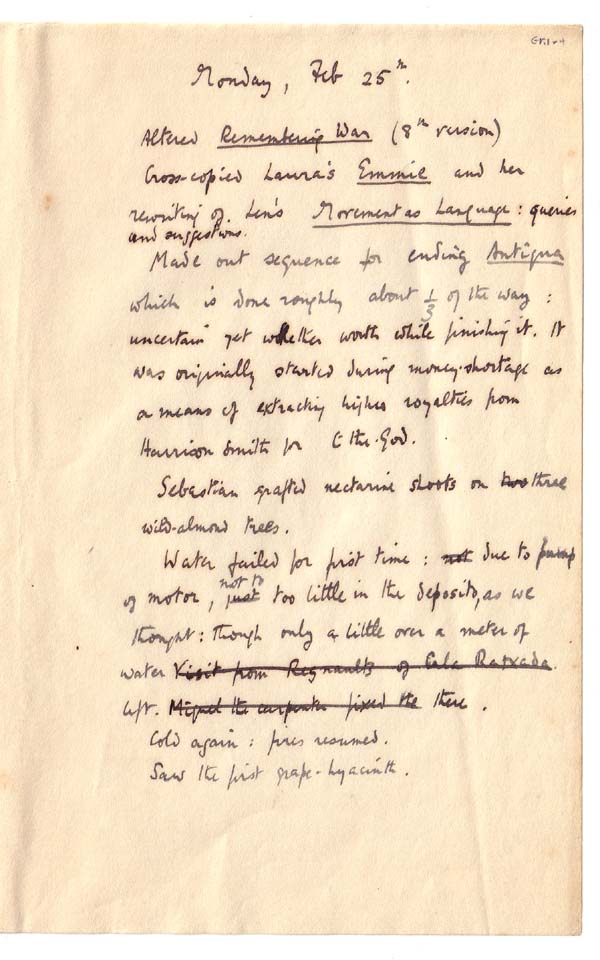 Monday, Feb 25th.
Altered Remembering War (8th version)
Cross-copied Laura's Emmie and her
rewriting of Len's Movement as Language: queries
and suggestions.
Made out sequence for ending Antigua
which is done roughly about 1/3 of the way:
uncertain yet whether worth while finishing it. It
was originally started during money-shortage as
a means of extracting higher royalties from
Harrison Smith for C the God.
Sebastian grafted nectarine shoots on two three
wild-almond trees.
Water failed for first time: not due to pump
of motor, just not to too little in the deposito, as we
thought: though only a little over a meter of
water Visit from Regnaults of Cala Ratxada.
left. Miguel the carpenter fixed the there.
Cold again: fires resumed.
Saw the first grape-hyacinth.